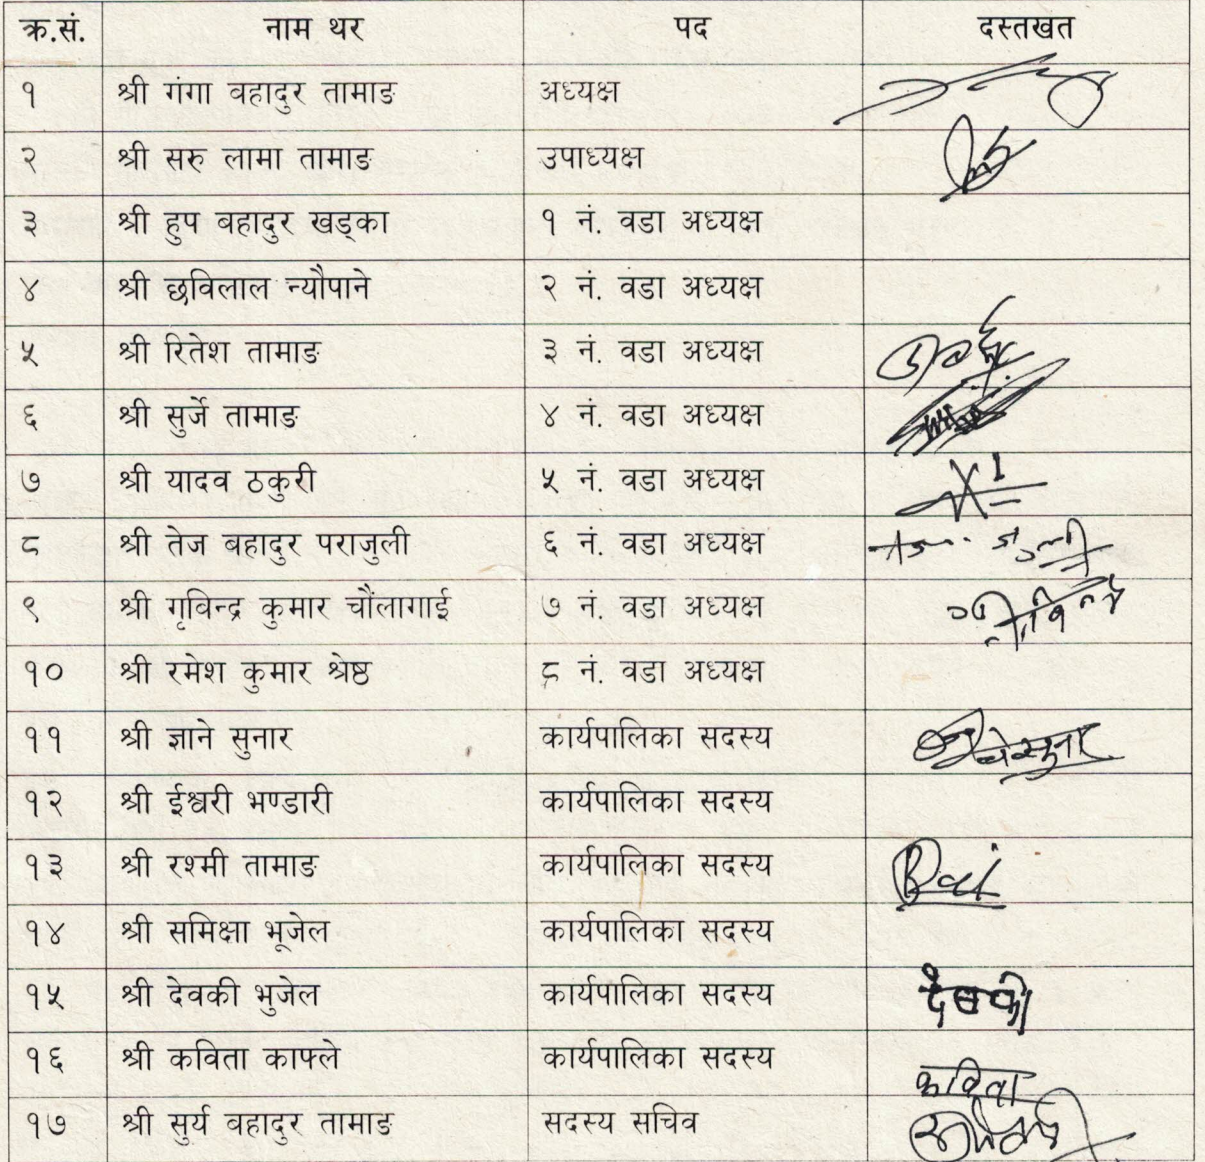 क्र.सं. नाम थर पद दस्तखत
१ श्री गंगा बहादुर तामाङ अध्यक्ष
२ श्री सरु लामा तामाङ उपाध्यक्ष
३ श्री हुप बहादुर खड्का १ नं. वडा अध्यक्ष
४ श्री छविलाल न्यौपाने २ नं. वडा अध्यक्ष
५ श्री रितेश तामाङ ३ नं. वडा अध्यक्ष
६ श्री सुर्जे तामाङ ४ नं. वडा अध्यक्ष
७ श्री यादव ठकुरी ५ नं. वडा अध्यक्ष
८ श्री तेज बहादुर पराजुली ६ नं. वडा अध्यक्ष
९ श्री गृविन्द्र कुमार चौंलागाई ७ नं. वडा अध्यक्ष
१० श्री रमेश कुमार श्रेष्ठ ८ नं. वडा अध्यक्ष
११ श्री ज्ञाने सुनार कार्यपालिका सदस्य
१२ श्री ईश्वरी भण्डारी कार्यपालिका सदस्य
१३ श्री रश्मी तामाङ कार्यपालिका सदस्य
१४ श्री समिक्षा भूजेल कार्यपालिका सदस्य
१५ श्री देवकी भुजेल कार्यपालिका सदस्य देवकी
१६ श्री कविता काफ्ले कार्यपालिका सदस्य कविता
१७ श्री सुर्य बहादुर तामाङ सदस्य सचिव